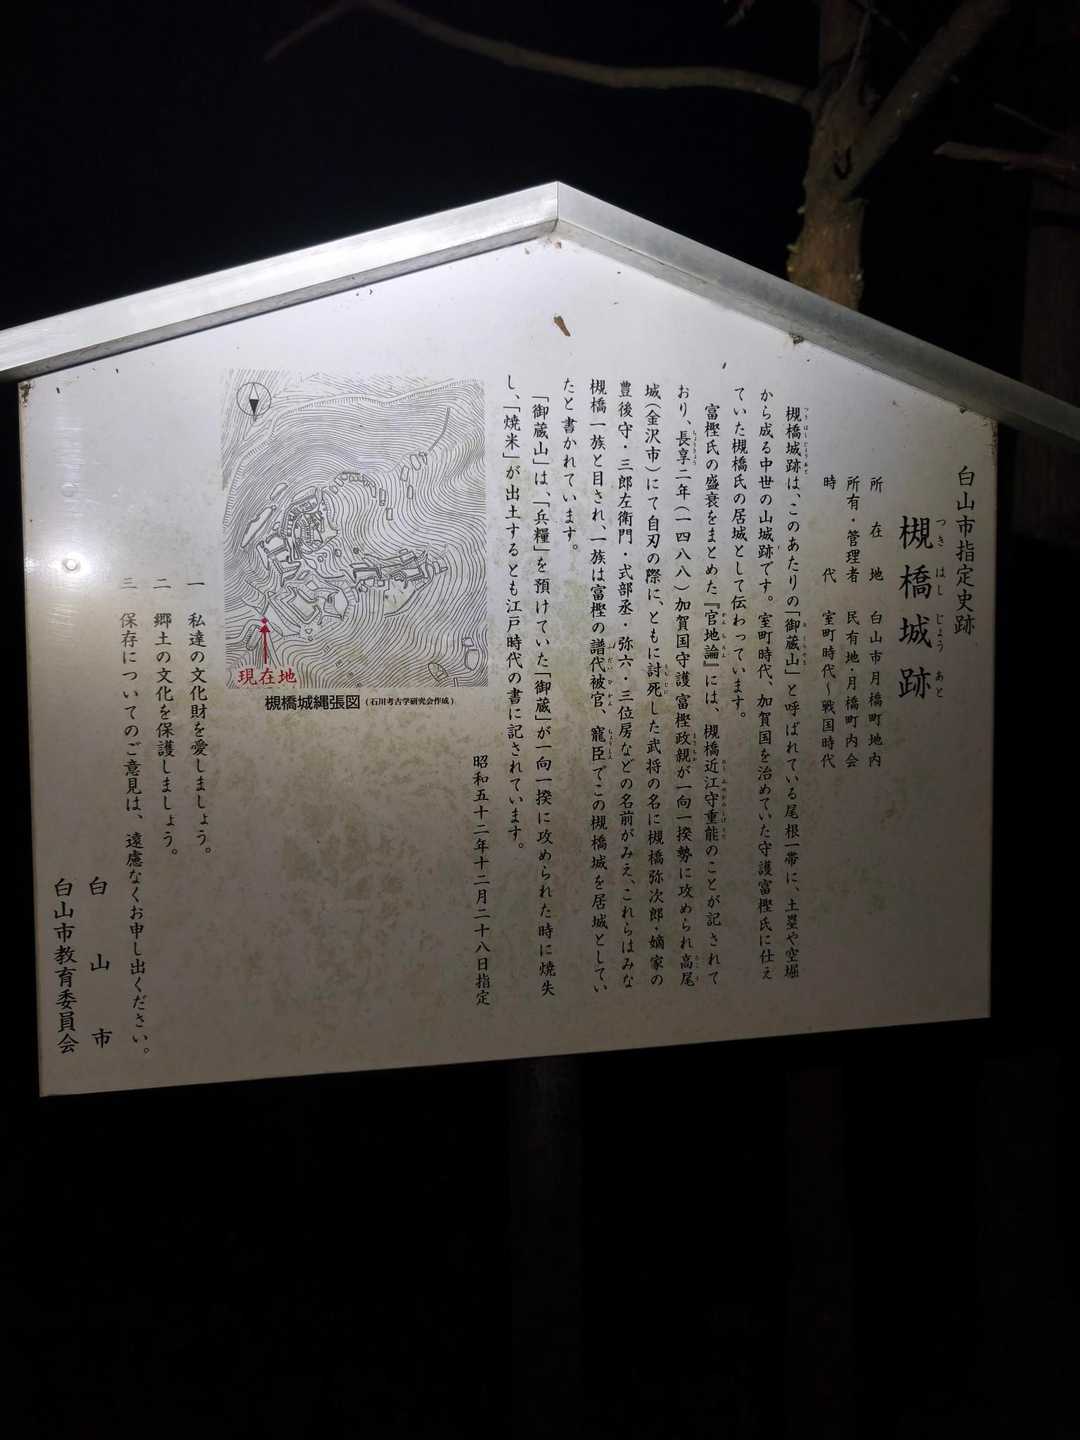 白山市指定史跡
槻橋城跡
つき はし じょう あと
所在地 白山市月橋町地内
所有・管理者 民有地・月橋町内会
時代 室町時代～戦国時代
槻橋城跡は、このあたりの「御蔵山」と呼ばれている尾根一帯に、土塁や空堀
から成る中世の山城跡です。室町時代、加賀国を治めていた守護富樫氏に仕え
ていた槻橋氏の居城として伝わっています。
富樫氏の盛衰をまとめた『官地論』には、槻橋近江守重能のことが記されて
おり、長享二年(一四八八)加賀国守護富樫政親が一向一揆勢に攻められ高尾
城(金沢市)にて自刃の際に、ともに討死した武将の名に槻橋弥次郎・嫡家の
豊後守・三郎左衛門・式部丞・弥六・三位房などの名前がみえ、これらはみな
槻橋一族と目され、一族は富樫の譜代被官、寵臣でこの槻橋城を居城としてい
たと書かれています。
「御蔵山」は、「兵糧」を預けていた「御蔵」が一向一揆に攻められた時に焼失
し、「焼米」が出土するとも江戸時代の書に記されています。
昭和五十二年十二月二十八日指定
現在地
槻橋城縄張図(石川考古学研究会作成)
一 私達の文化財を愛しましょう。
二 郷土の文化を保護しましょう。
三 保存についてのご意見は、遠慮なくお申し出ください。
白山市
白山市教育委員会